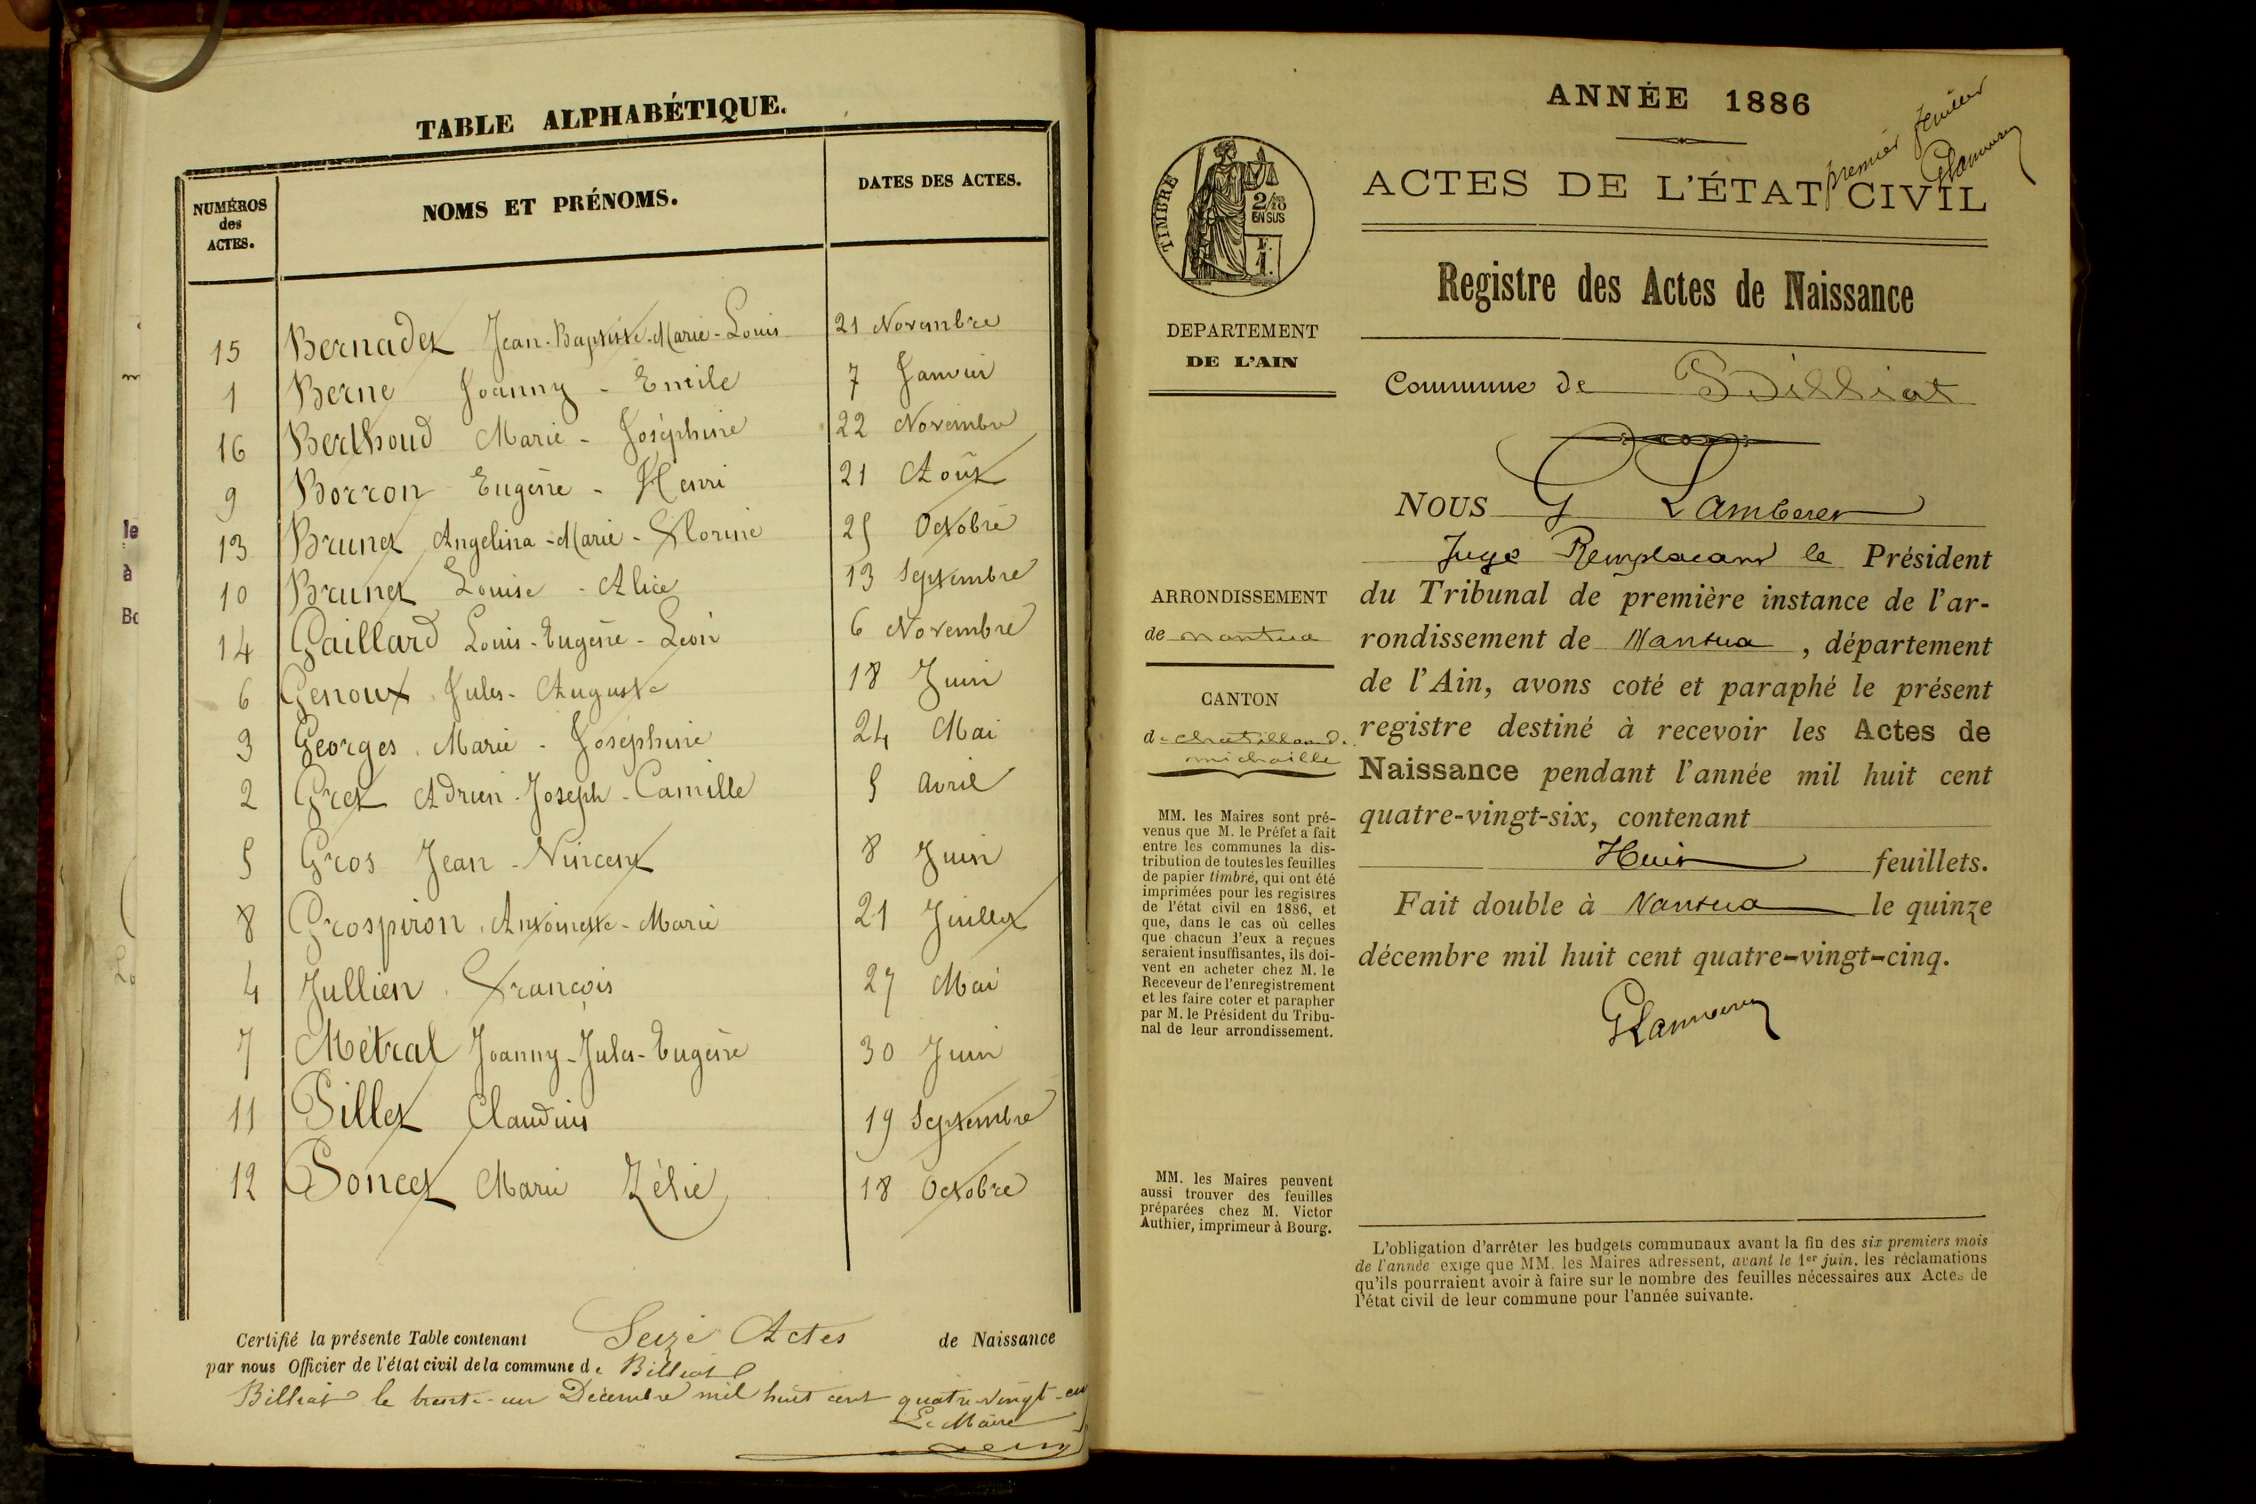 TABLE ALPHABÉTIQUE.
NUMÉROS des ACTES. NOMS ET PRÉNOMS. DATES DES ACTES.
15 Bernadet Jean-Baptiste-Marie-Louis 21 Novembre
1 Berne Joanny - Emile 7 Janvier
16 Berthoud Marie - Joséphine 22 Novembre
9 Borron Eugène - Henri 21 Août
13 Brunet Angelina - Marie - Florine 25 Octobre
10 Brunet Louise - Alice 13 Septembre
14 Gaillard Louis - Eugène - Léon 6 Novembre
6 Genoux Jules - Auguste 18 Juin
3 Georges Marie - Joséphine 24 Mai
2 Gret Adrien - Joseph - Camille 5 avril
5 Gros Jean - Vincent 8 Juin
8 Grospiron Antoinette - Marie 21 Juillet
4 Jullien François 27 Mai
7 Métral Joanny - Jules - Eugène 30 Juin
11 Pillet Claudius 19 Septembre
12 Poncet Marie Zélie 18 Octobre
Certifié la présente Table contenant Seize Actes de Naissance
par nous Officier de l'état civil de la commune de Billiat
Billiat le trente-un Décembre mil huit cent quatre-vingt-
Le Maire
le
à
Bo
ANNÉE 1886
premier feuillet
ACTES DE L'ÉTAT CIVIL
TIMBRE
2/10
EN SUS
F.
1.
Registre des Actes de Naissance
DEPARTEMENT
DE L'AIN
Commune de Billiat
NOUS G Lamberet
Juge Remplaçant le Président
du Tribunal de première instance de l'ar-
rondissement de Nantua, département
de l'Ain, avons coté et paraphé le présent
registre destiné à recevoir les Actes de
Naissance pendant l'année mil huit cent
quatre-vingt-six, contenant
Huit feuillets.
Fait double à Nantua le quinze
décembre mil huit cent quatre-vingt-cinq.
GLamberet
ARRONDISSEMENT
de Nantua
CANTON
de Chatillon d.
michaille
MM. les Maires sont pré-
venus que M. le Préfet a fait
entre les communes la dis-
tribution de toutes les feuilles
de papier timbré, qui ont été
imprimées pour les registres
de l'état civil en 1886, et
que, dans le cas où celles
que chacun d'eux a reçues
seraient insuffisantes, ils doi-
vent en acheter chez M. le
Receveur de l'enregistrement
et les faire coter et parapher
par M. le Président du Tribu-
nal de leur arrondissement.
MM. les Maires peuvent
aussi trouver des feuilles
préparées chez M. Victor
Authier, imprimeur à Bourg.
L'obligation d'arrêter les budgets communaux avant la fin des six premiers mois
de l'année exige que MM. les Maires adressent, avant le 1er juin, les réclamations
qu'ils pourraient avoir à faire sur le nombre des feuilles nécessaires aux Actes de
l'état civil de leur commune pour l'année suivante.